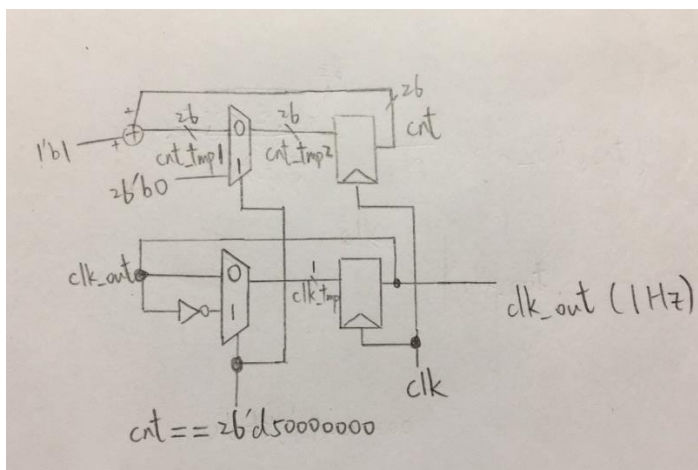 26
26
26
cnt
1'b1
+
+
+
0
cnt_tmp1
cnt_tmp2
1
26'b0
clk_out
0
1
clk_tmp
1
clk_out (1Hz)
clk
cnt == 26'd50000000